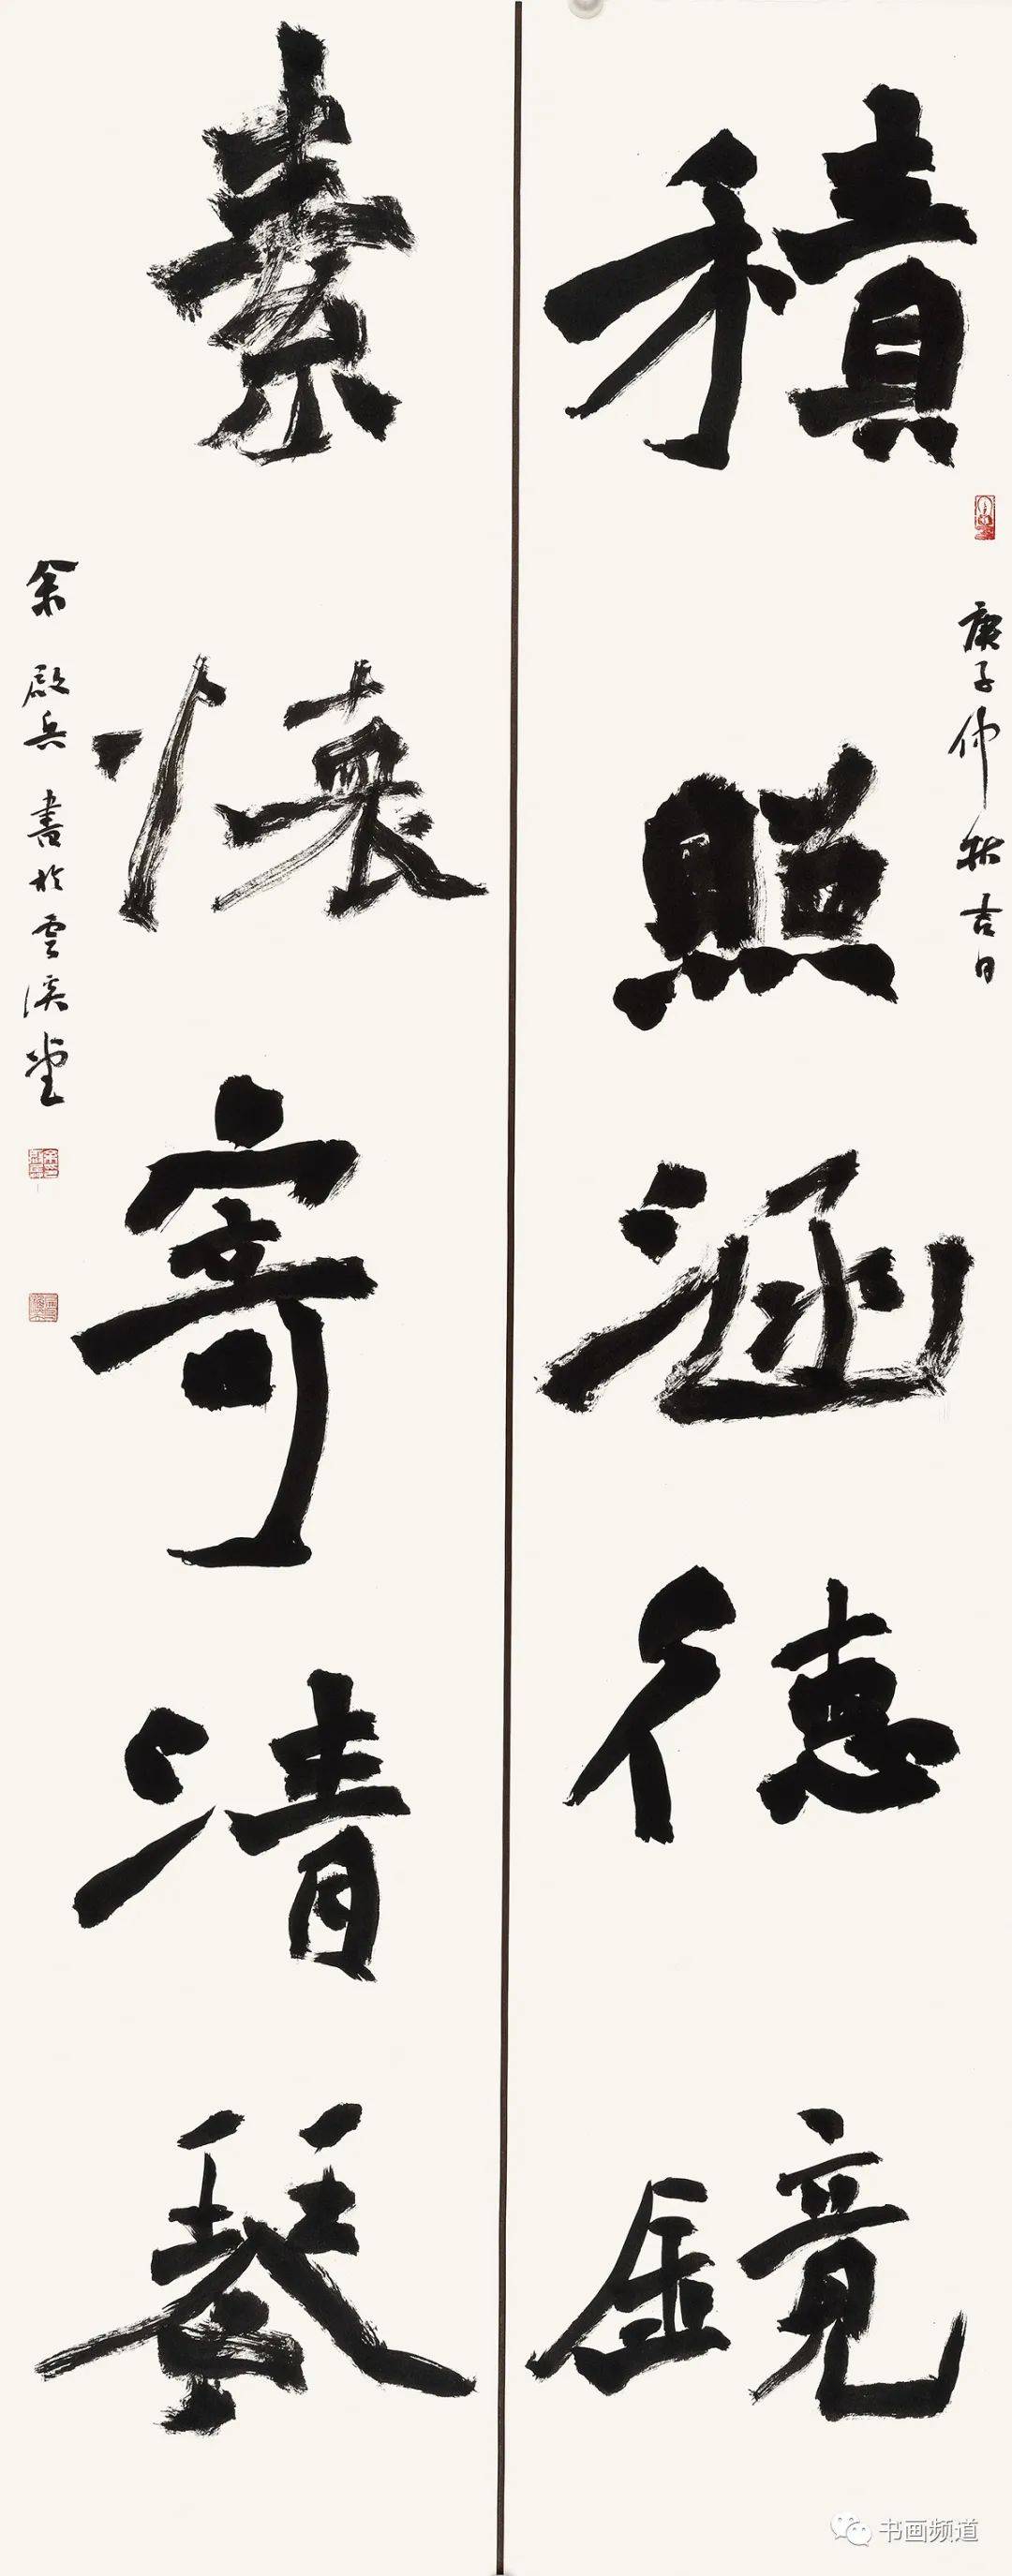 積照涵德鏡
庚子仲秋吉日
素懷寄清琴
余啟兵書於雲溪堂
书画频道